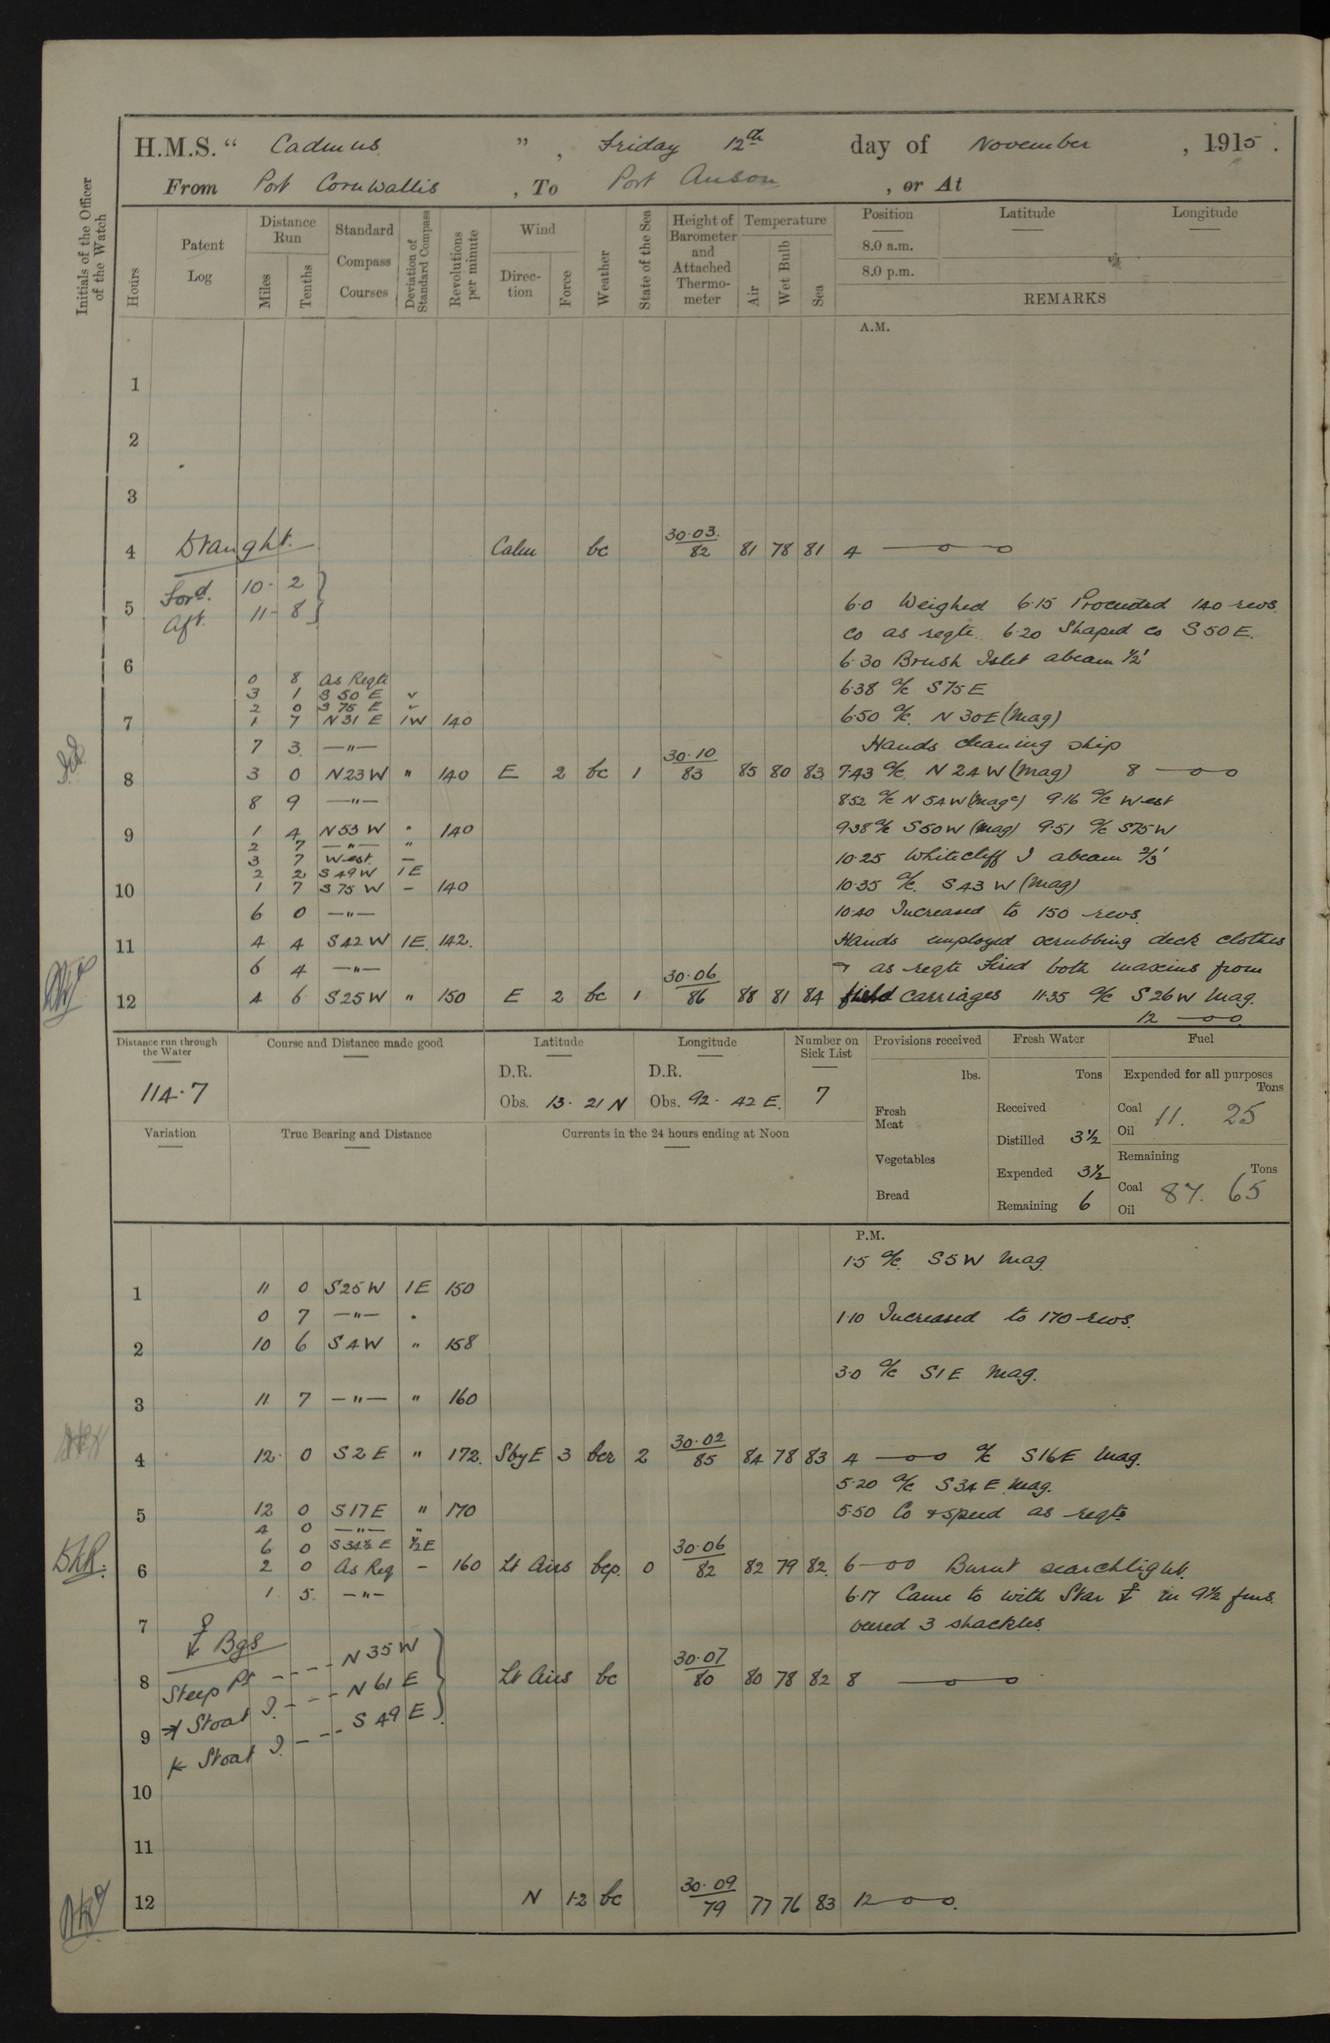 H.M.S. “ Cadmus ” , Friday 12th day of November , 1915 .
From Port Cornwallis , To Port Anson , or At
Initials of the Officer of the Watch
Hours
Patent Log
Distance Run
Miles
Tenths
Standard Compass Courses
Deviation of Standard Compass
Revolutions per minute
Wind
Direction
Force
Weather
State of the Sea
Height of Barometer and Attached Thermometer
Temperature
Air
Wet Bulb
Sea
Position Latitude Longitude
8.0 a.m.
8.0 p.m.
REMARKS
A.M.
1
2
3
Draught.
4 Calm bc 30·03 82 81 78 81 4 —o—o
Ford. 10 - 2
5 6·0 Weighed 6·15 Proceeded 140 revs.
Aft. 11 - 8
Co as reqte. 6·20 Shaped co S 50 E.
6 6·30 Brush Islet abeam ½'
0 8 As Reqte
3 1 S 50 E ✓ 6·38 a/c S75E
2 0 S 75 E ✓
7 1 7 N 31 E 1W 140 6·50 a/c. N 30E (Mag)
7 3 —"— Hands cleaning ship
8 3 0 N23W " 140 E 2 bc 1 30·10 83 85 80 83 7·43 a/c N 24 W (Mag) 8 —o—o
8 9 —"— 8·52 a/c N 54W (Magc) 9·16 a/c West
9 1 4 N53W " 140 9·38 a/c S50W (Mag) 9·51 a/c S75W
2 7 —"— "
3 7 West — 10·25 Whitecliff I abeam ⅔'
2 2 S49W 1E
10 1 7 S 75 W – 140 10·35 a/c. S 43 W (Mag)
6 0 —"— 10·40 Increased to 150 revs.
11 4 4 S42W 1E 142. Hands employed scrubbing deck clothes
6 4 —"— & as reqte Fired both maxims from
12 4 6 S25W " 150 E 2 bc 1 30·06 86 88 81 84 field carriages 11·35 a/c S26W Mag.
12 —o—o
Distance run through the Water Course and Distance made good Latitude Longitude Number on Sick List Provisions received Fresh Water Fuel
D.R. D.R. lbs. Tons Expended for all purposes Tons
114·7 Obs. 13 - 21 N Obs. 92 - 42 E. 7 Fresh Meat Received Coal 11. 25
Oil
Variation True Bearing and Distance Currents in the 24 hours ending at Noon Distilled 3½
Remaining Tons
Vegetables Expended 3½
Coal 87. 65
Bread Remaining 6 Oil
P.M.
1·5 a/c. S5W Mag
1 11 0 S25W 1E 150
0 7 —"— " 1·10 Increased to 170 revs.
2 10 6 S4W " 158
3·0 a/c S1E Mag.
3 11 7 —"— " 160
4 12 0 S2E " 172. SbyE 3 bcr 2 30·02 85 84 78 83 4 —o—o a/c S16E Mag.
5·20 a/c S34E Mag.
5 12 0 S17E " 170 5·50 Co & speed as reqte
4 0 —"— "
6 0 S34½E ½E
6 2 0 As Req – 160 Lt Airs bcp. 0 30·06 82 82 79 82. 6 —o—o Burnt searchlight.
1 5 —"— 6·17 Came to with Star ⚓ in 9½ fms.
7 veered 3 shackles.
⚓ Bgs
8 Lt Airs bc 30·07 80 80 78 82 8 —o—o
Steep Pt - - - - N 35 W
Stoat I. - - - N 61 E
9
Stoat I. - - - S 49 E
10
11
12 N 1-2 bc 30·09 79 77 76 83 12 —o—o.
DKR.